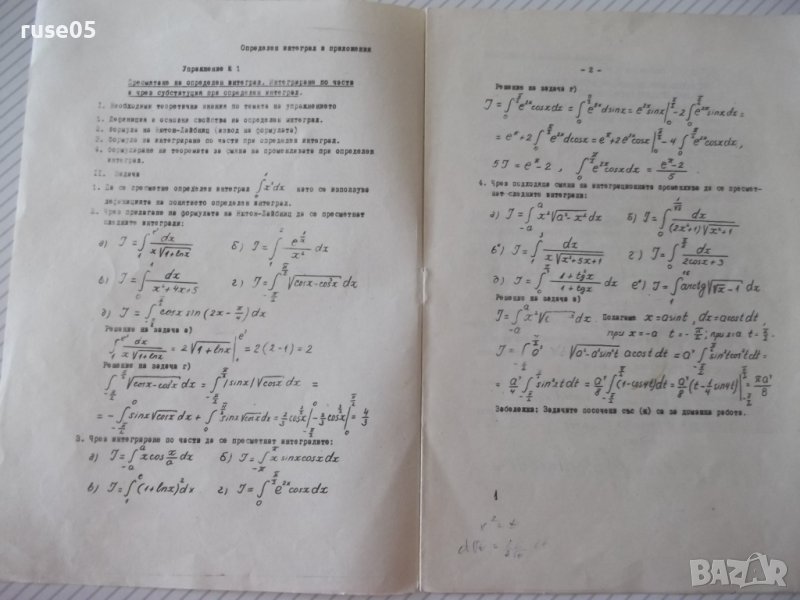 ruse05
Определен интеграл и приложения
Упражнение № 1
Пресмятане на определен интеграл. Интегриране по части
и чрез субституция при определен интеграл.
I. Необходими теоретични знания по темата на упражнението
1. Дефиниция и основни свойства на определен интеграл.
2. Формула на Нютон-Лайбниц (извод на формулата)
3. Формула на интегриране по части при определен интеграл.
4. Формулиране на теоремата за смяна на променливите при определен
интеграл.
II. Задачи
1. Да се пресметне определен интеграл ∫ x² dx като се използува
дефиницията на понятието определен интеграл.
2. Чрез прилагане на формулата на Нютон-Лайбниц да се пресметнат
следните интеграли:
а) J = ∫ dx / x√(1+lnx) б) J = ∫₁² e^(1/x) / x² dx
в) J = ∫₀¹ dx / (x²+4x+5) г) J = ∫_{-π/2}^{π/2} √(cosx-cos³x) dx
д) J = ∫ cosx sin(2x - π/4) dx
Решение на задача а)
∫ dx / x√(1+lnx) = 2√(1+lnx) | = 2(2-1) = 2
Решение на задача г)
∫_{-π/2}^{π/2} √(cosx-cos³x) dx = ∫_{-π/2}^{π/2} |sinx| √cosx dx =
= -∫ sinx√cosx dx + ∫ sinx√cosx dx = = 4/3
3. Чрез интегриране по части да се пресметнат интегралите:
а) J = ∫_{-a}^{a} x cos x/a dx б) J = ∫_{-π}^{π} x sinx cosx dx
в) J = ∫₁^e (1+lnx)² dx г) J = ∫₀^{π/2} e^{2x} cosx dx
- 2 -
Решение на задача г)
J = ∫₀^{π/2} e^{2x} cosx dx = ∫₀^{π/2} e^{2x} dsinx = e^{2x} sinx |₀^{π/2} - 2∫₀^{π/2} e^{2x} sinx dx =
= e^π + 2∫₀^{π/2} e^{2x} dcosx = e^π + 2e^{2x} cosx |₀^{π/2} - 4∫₀^{π/2} e^{2x} cosx dx,
5J = e^π - 2 , ∫₀^{π/2} e^{2x} cosx dx = (e^π - 2)/5 .
4. Чрез подходяща смяна на интеграционната променлива да се пресмет-
нат следните интеграли:
а) J = ∫_{-a}^{a} x²√(a²-x²) dx б) J = ∫₀^{1/√3} dx / (2x²+1)√(x²+1)
в) J = ∫ dx / x√(x²+5x+1) г) J = ∫₀^{π/2} dx / (2cosx+3)
д) J = ∫₀ (1+tg²x)/(1+tgx) dx е) J = ∫₁^{16} arctg√(√x-1) dx
Решение на задача а)
J = ∫_{-a}^{a} x²√ dx. Полагаме x = a sint, dx = a cost dt,
при x = -a t = -π/2; при x = a t = π/2.
J = ∫_{-π/2}^{π/2} a² √(a²-a²sin²t) a cost dt = a⁴ ∫_{-π/2}^{π/2} sin²t cos²t dt =
= a⁴/4 ∫_{-π/2}^{π/2} sin²2t dt = a⁴/8 ∫_{-π/2}^{π/2} (1-cos4t) dt = a⁴/8 (t - 1/4 sin4t) |_{-π/2}^{π/2} = πa⁴/8
Забележка: Задачите посочени със (ж) са за домашна работа.
1
BAZAR